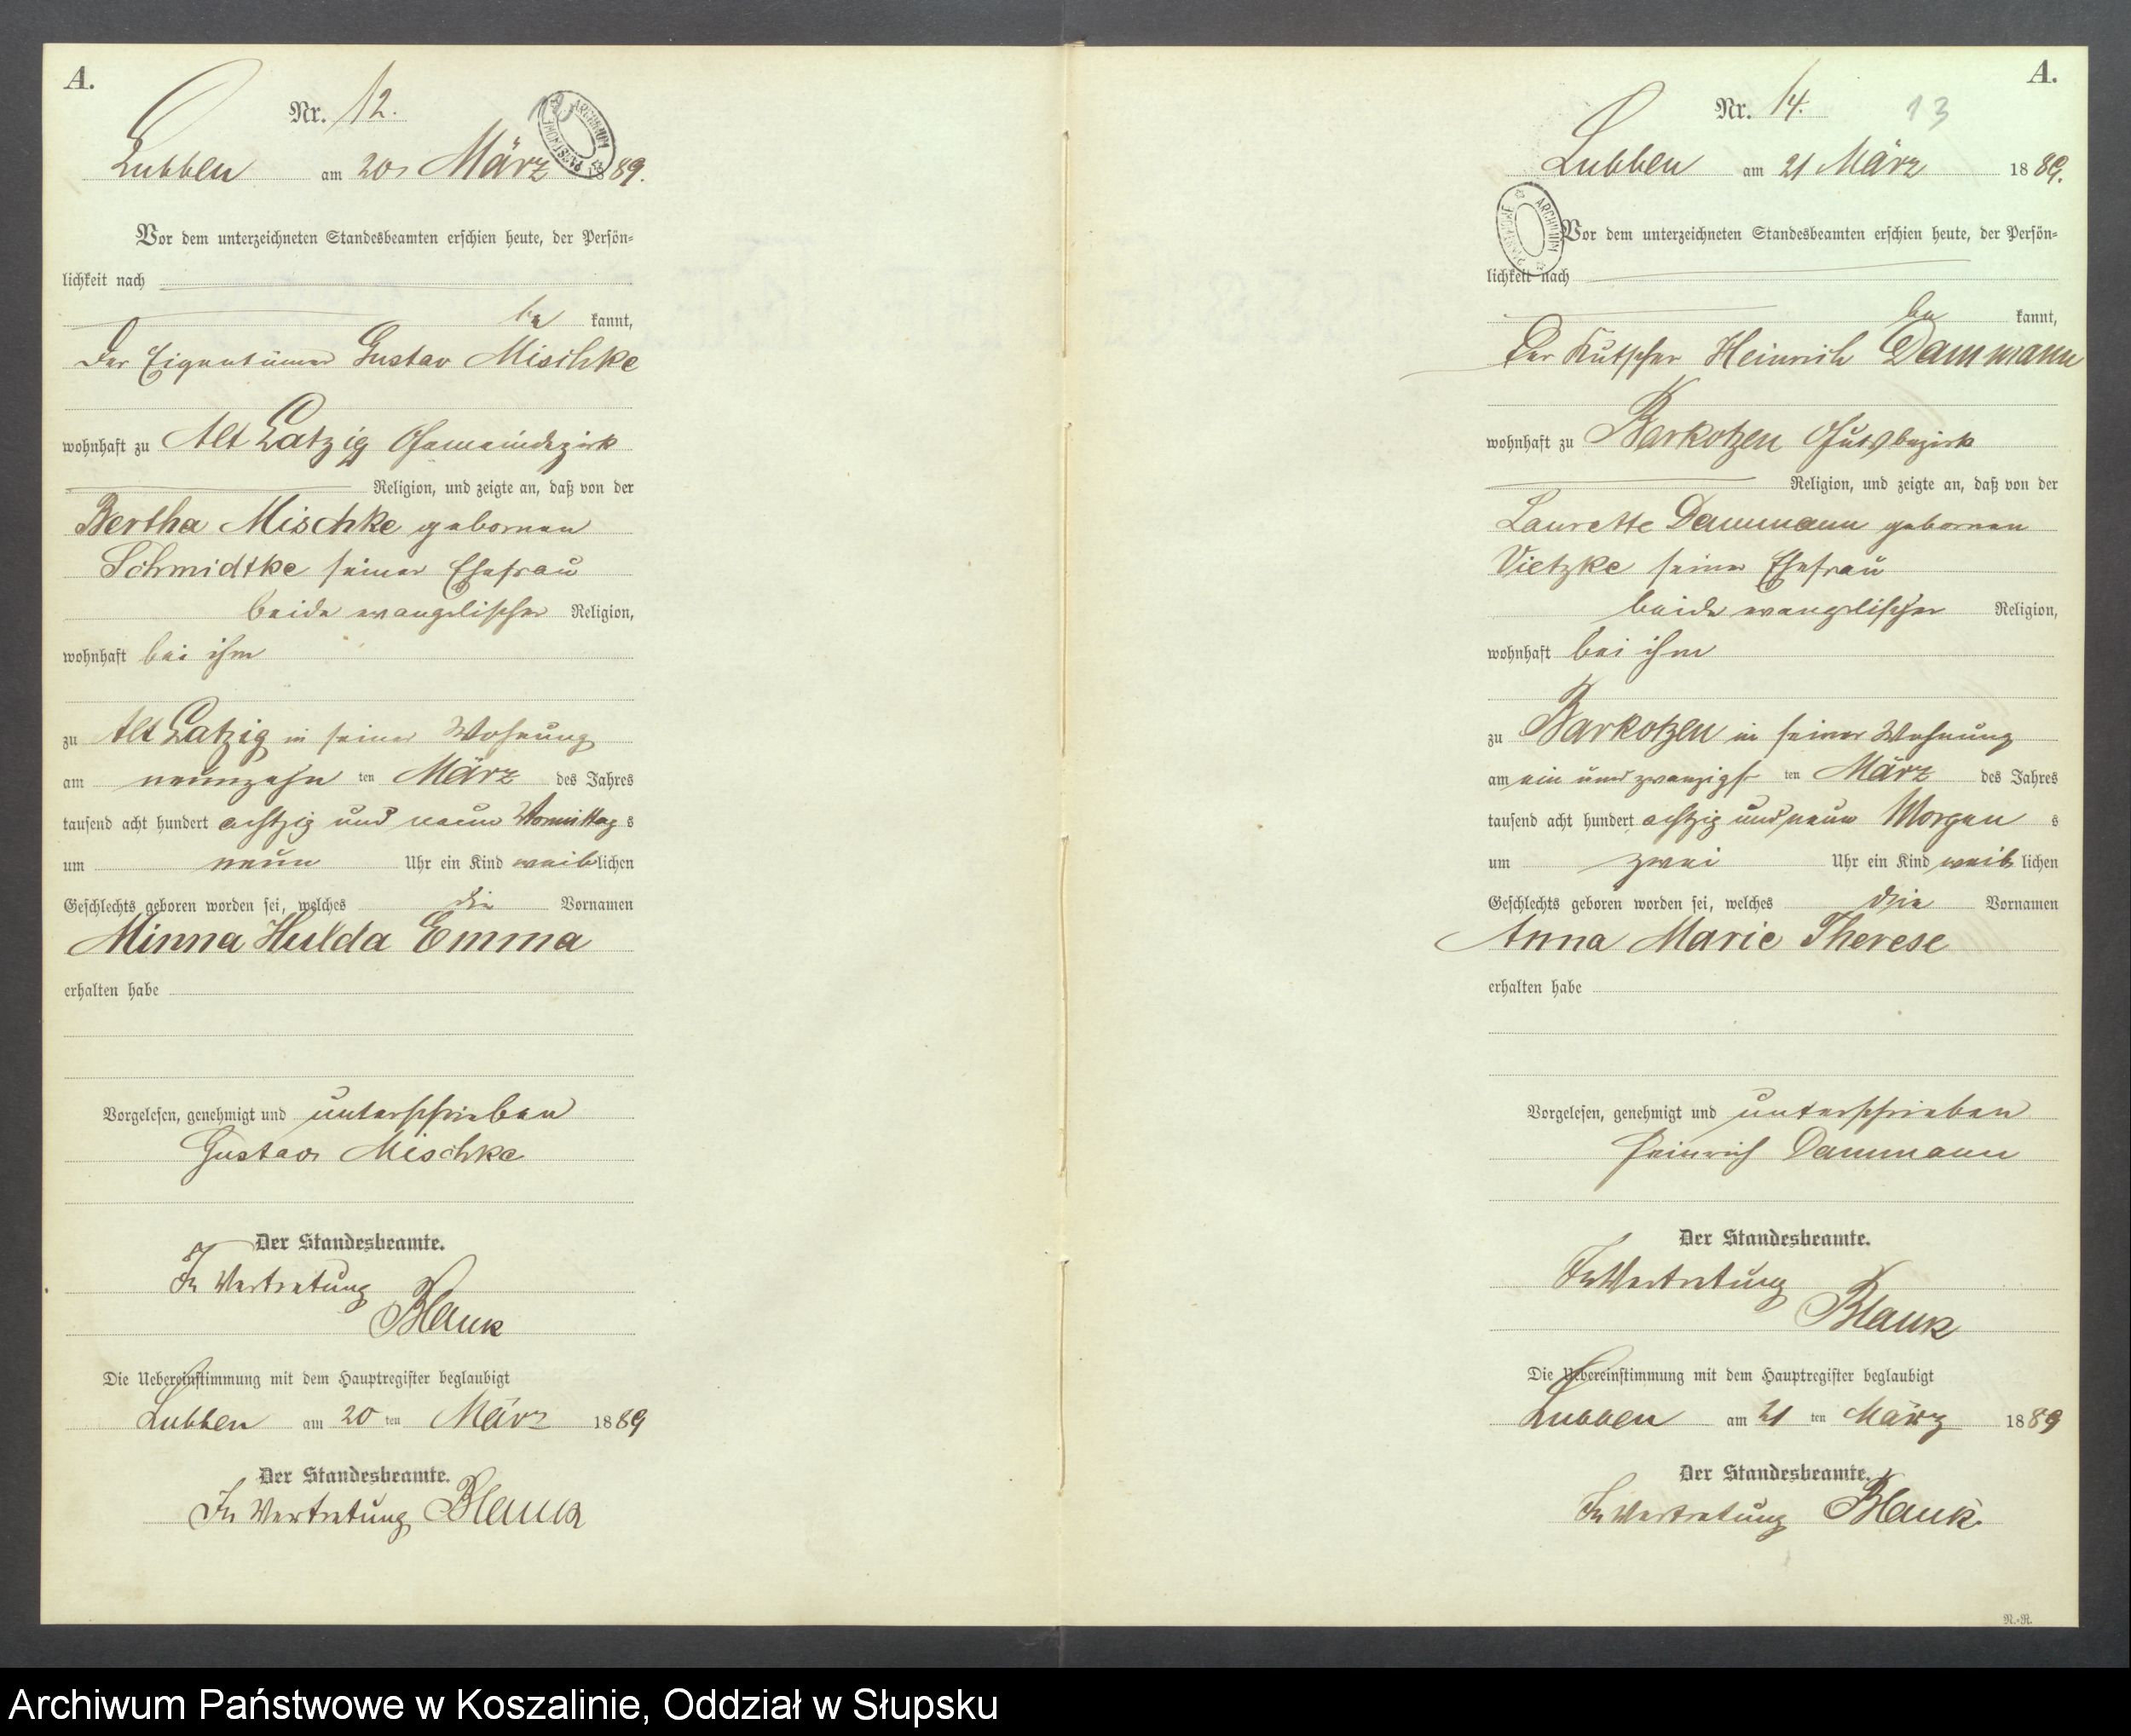 A.
Nr. 12.
Lubben am 20 März 1889.
Vor dem unterzeichneten Standesbeamten erschien heute, der Persön-
lichkeit nach
be kannt,
Der Eigentümer Gustav Mischke
wohnhaft zu Alt Latzig Gemeindezirk
Religion, und zeigte an, daß von der
Bertha Mischke gebornen
Schmidtke seiner Ehefrau
beide evangelischer Religion,
wohnhaft bei ihm
zu Alt Latzig in seiner Wohnung
am neunzehn ten März des Jahres
tausend acht hundert achtzig und neun Vormittag s
um neun Uhr ein Kind weiblichen
Geschlechts geboren worden sei, welches die Vornamen
Minna Hulda Emma
erhalten habe
Vorgelesen, genehmigt und unterschrieben
Gustav Mischke
Der Standesbeamte.
In Vertretung
Blank
Die Uebereinstimmung mit dem Hauptregister beglaubigt
Lubben am 20 ten März 1889
Der Standesbeamte.
In Vertretung Blank
A.
Nr. 14. 13
Lubben am 21 März 1889.
ARCHIWUM PAŃSTWOWE
Vor dem unterzeichneten Standesbeamten erschien heute, der Persön-
lichkeit nach
be kannt,
Der Kutscher Heinrich Dammann
wohnhaft zu Barkotzen Gutsbezirk
Religion, und zeigte an, daß von der
Laurette Dammann gebornen
Vietzke seiner Ehefrau
beide evangelischer Religion,
wohnhaft bei ihm
zu Barkotzen in seiner Wohnung
am ein und zwanzigsten März des Jahres
tausend acht hundert achtzig und neun Morgen s
um zwei Uhr ein Kind weib lichen
Geschlechts geboren worden sei, welches die Vornamen
Anna Marie Therese
erhalten habe
Vorgelesen, genehmigt und unterschrieben
Heinrich Dammann
Der Standesbeamte.
In Vertretung
Blank
Die Uebereinstimmung mit dem Hauptregister beglaubigt
Lubben am 21 ten März 1889
Der Standesbeamte.
In Vertretung Blank
N.-R.
Archiwum Państwowe w Koszalinie, Oddział w Słupsku